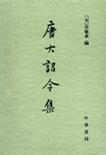 唐大詔令集
[宋]宋敏求 編
中華書局